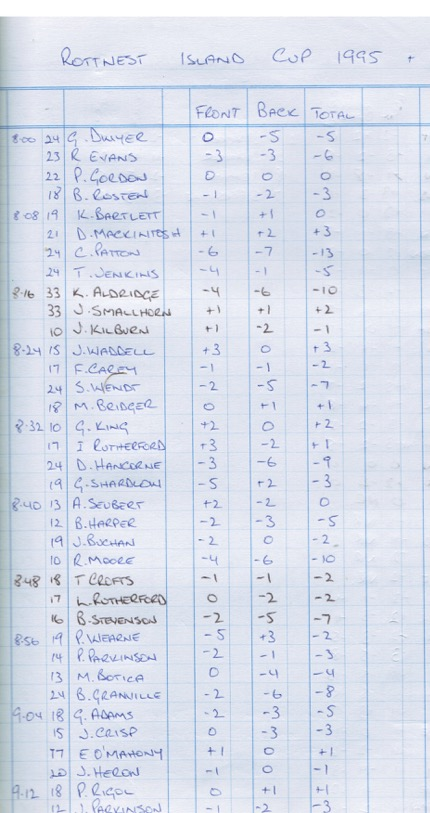 ROTTNEST ISLAND CUP 1995 +
FRONT BACK TOTAL
8.00 24 G. DWYER 0 -5 -5
23 R EVANS -3 -3 -6
22 P. GORDON 0 0 0
18 B. ROSTEN -1 -2 -3
8.08 19 K. BARTLETT -1 +1 0
21 D. MACKINTOSH +1 +2 +3
24 C. PATTON -6 -7 -13
24 T. JENKINS -4 -1 -5
8.16 33 K. ALDRIDGE -4 -6 -10
33 J. SMALLHORN +1 +1 +2
10 J. KILBURN +1 -2 -1
8.24 15 J. WADDELL +3 0 +3
17 F. CAREY -1 -1 -2
24 S. WENDT -2 -5 -7
18 M. BRIDGER 0 +1 +1
8.32 10 G. KING +2 0 +2
17 I RUTHERFORD +3 -2 +1
24 D. HANCORNE -3 -6 -9
19 G. SHARDLOW -5 +2 -3
8.40 13 A. SEUBERT +2 -2 0
12 B. HARPER -2 -3 -5
19 J. BUCHAN -2 0 -2
10 R. MOORE -4 -6 -10
8.48 18 T CROFTS -1 -1 -2
17 L. RUTHERFORD 0 -2 -2
16 B. STEVENSON -2 -5 -7
8.56 19 P. WEARNE -5 +3 -2
14 P. PARKINSON -2 -1 -3
13 M. BOTICA 0 -4 -4
24 B. GRANVILLE -2 -6 -8
9.04 18 G. ADAMS -2 -3 -5
15 J. CRISP 0 -3 -3
17 E O'MAHONY +1 0 +1
20 J. HERON -1 0 -1
9.12 18 P. RIGOL 0 +1 +1
12 J. PARKINSON -1 -2 -3